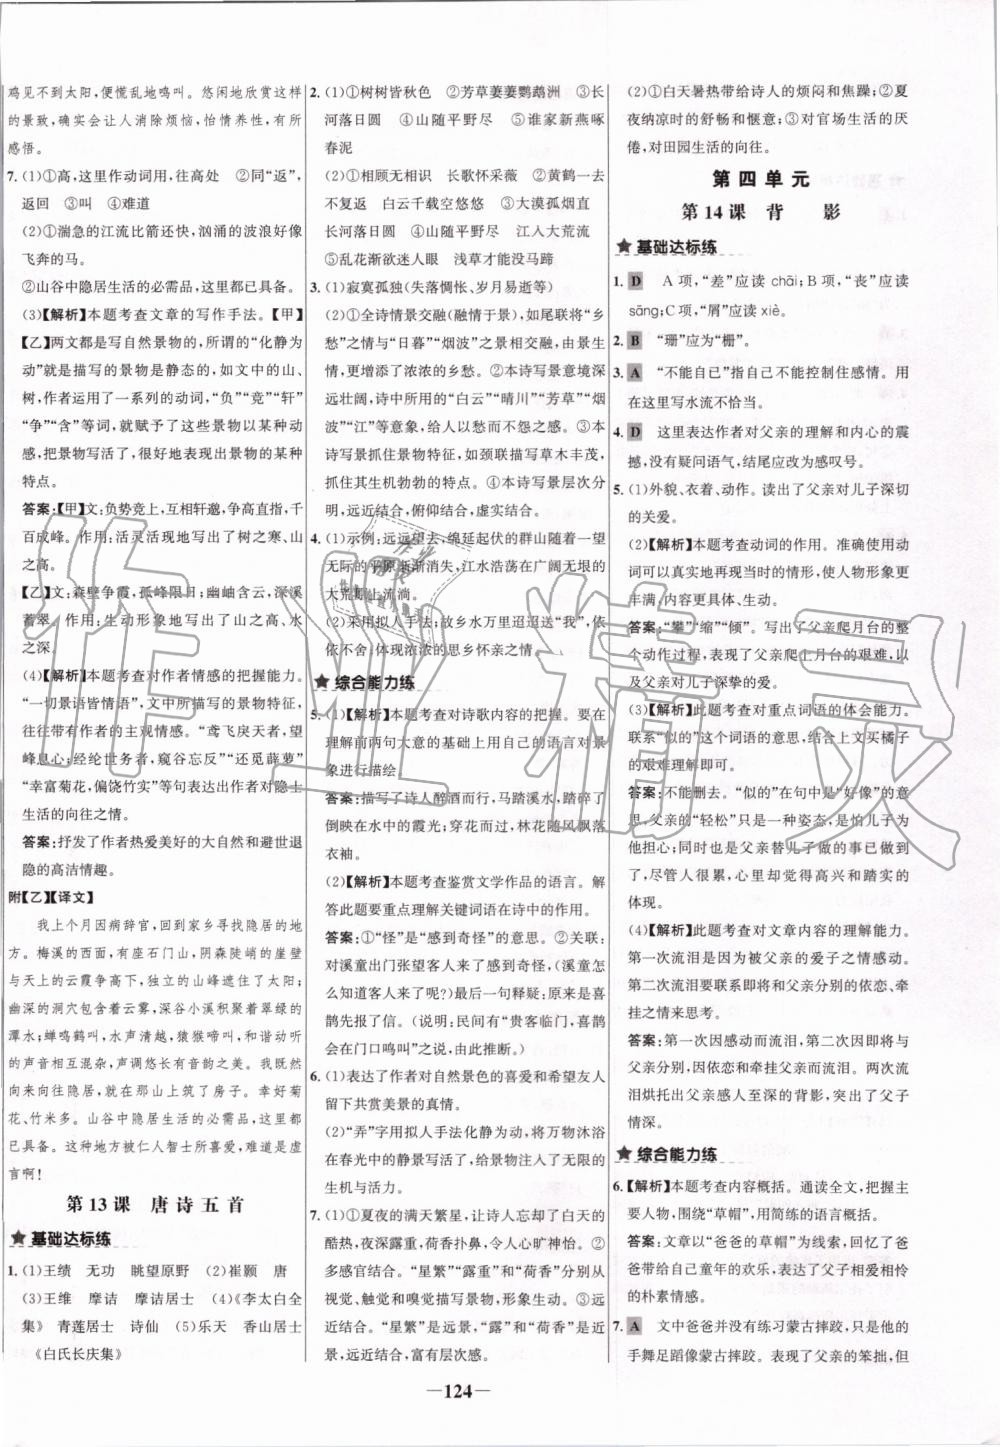 鸡见不到太阳，便慌乱地鸣叫。悠闲地欣赏这样
的景致，确实会让人消除烦恼，怡情养性，有所
感悟。
7.(1)①高，这里作动词用，往高处　②同“返”，
返回　③叫　④难道
(2)①湍急的江流比箭还快，汹涌的波浪好像
飞奔的马。
②山谷中隐居生活的必需品，这里都已具备。
(3)【解析】本题考查文章的写作手法。【甲】
【乙】两文都是写自然景物的，所谓的“化静为
动”就是描写的景物是静态的，如文中的山、
树，作者运用了一系列的动词，“负”“竞”“轩”
“争”“含”等词，就赋予了这些景物以某种动
感，把景物写活了，很好地表现出景物的某种
特点。
答案：【甲】文：负势竞上，互相轩邈，争高直指，千
百成峰。作用：活灵活现地写出了树之寒、山
之高。
【乙】文：森壁争霞，孤峰限日；幽岫含云，深溪
蓄翠。作用：生动形象地写出了山之高、水
之深。
(4)【解析】本题考查对作者情感的把握能力。
“一切景语皆情语”，文中所描写的景物特点，
往往带有作者的主观情感。“鸢飞戾天者，望
峰息心；经纶世务者，窥谷忘反”“还觅薜萝”
“幸富菊花，偏饶竹实”等句表达出作者对隐士
生活的向往之情。
答案：抒发了作者热爱美好的大自然和避世退
隐的高洁情趣。
附【乙】【译文】
我上个月因病辞官，回到家乡寻找隐居的地
方。梅溪的西面，有座石门山，阴森陡峭的崖壁
与天上的云霞争高下，独立的山峰遮住了太阳；
幽深的洞穴包含着云雾，深谷小溪积聚着翠绿的
潭水；蝉鸣鹤叫，水声清越，猿猴啼叫，和谐动听
的声音相互混杂，声调悠长有音韵之美。我既然
向来向往隐居，就在那山上筑了房子。幸好菊
花、竹米多。山谷中隐居生活的必需品，这里都
已具备。这种地方被仁人智士所喜爱，难道是虚
言啊！
第13课　唐诗五首
基础达标练
1.(1)王绩　无功　眺望原野　(2)崔颢　唐
(3)王维　摩诘　摩诘居士　(4)《李太白全
集》　青莲居士　诗仙　(5)乐天　香山居士
《白氏长庆集》
2.(1)①树树皆秋色　②芳草萋萋鹦鹉洲　③长
河落日圆　④山随平野尽　⑤谁家新燕啄
春泥
(2)①相顾无相识　长歌怀采薇　②黄鹤一去
不复返　白云千载空悠悠　③大漠孤烟直
长河落日圆　④山随平野尽　江入大荒流
⑤乱花渐欲迷人眼　浅草才能没马蹄
3.(1)寂寞孤独(失落惆怅、岁月易逝等)
(2)①全诗情景交融(融情于景)，如尾联将“乡
愁”之情与“日暮”“烟波”之景相交融，融景生
情，更增添了浓浓的乡愁。②本诗写景意境深
远壮阔，诗中所用的“白云”“晴川”“芳草”“烟
波”“江”等意象，给人以愁而不怨之感。③本
诗写景抓住景物特征，如颈联描写草木丰茂，
抓住其生机勃勃的特点。④本诗写景层次分
明，远近结合，俯仰结合，虚实结合。
4.(1)示例：远远望去，绵延起伏的群山随着一望
无际的平原渐渐消失，江水浩荡在广阔无垠的
大荒原上流淌。
(2)采用拟人手法；故乡水万里迢迢送“我”，依
依不舍；体现浓浓的思乡怀亲之情。
综合能力练
5.(1)【解析】本题考查对诗歌内容的把握。要在
理解前两句大意的基础上用自己的语言对景
象进行描绘。
答案：描写了诗人醉酒而行，马踏溪水，踏碎了
倒映在水中的霞光；穿花而过，林花随风飘落
衣袖。
(2)【解析】本题考查鉴赏文学作品的语言。解
答此题要重点理解关键词语在诗中的作用。
答案：①“怪”是“感到奇怪”的意思。②关联：
对溪童出门张望客人来了感到奇怪，(溪童怎
么知道客人来了呢？)最后一句释疑：原来是喜
鹊先报了信。(说明：民间有“贵客临门，喜鹊
会在门口鸣叫”的说法，由此推断。)
6.(1)表达了作者对自然景色的喜爱和希望友人
留下共赏美景的真情。
(2)“弄”字用拟人手法化静为动，将万物沐浴
在春光中的静景写活了，给景物注入了无限的
生机与活力。
7.(1)①夏夜的满天繁星，让诗人忘却了白天的
酷热，夜深露重，荷香扑鼻，心旷神怡。②
多感官结合。“星繁”“露重”和“荷香”分别从
视觉、触觉和嗅觉描写景物，形象生动。③远
近结合。“星繁”是远景，“露”和“荷香”是近
景，远近结合，富有层次感。
(2)①白天暑热带给诗人的烦闷和焦躁；②夏
夜纳凉时的舒畅和惬意；③对官场生活的厌
倦，对田园生活的向往。
第四单元
第14课　背　影
基础达标练
1. D　A项，“差”应读chāi；B项，“丧”应读
sāng；C项，“屑”应读xiè。
2. B　“珊”应为“栅”。
3. A　“不能自已”指自己不能控制住感情。用
在这里写水流不恰当。
4. D　这里表达作者对父亲的理解和内心的震
撼，没有疑问语气，结尾应改为感叹号。
5.(1)外貌、衣着、动作。读出了父亲对儿子深切
的关爱。
(2)【解析】本题考查动词的作用。准确使用动
词能真实地再现当时的情形，使人物形象更
丰满，使情节更具体、生动。
答案：“攀”“缩”“倾”。写出了父亲爬月台的整
个动作过程，表现了父亲爬上月台的艰难，以
及父亲对儿子深挚的爱。
(3)【解析】此题考查对重点词语的体会能力。
联系“似的”这个词语的意思，结合上文买橘子
的艰难理解即可。
答案：不能删去。“似的”在句中是“好像”的意
思，父亲的“轻松”只是一种姿态，是怕儿子为
他担心；同时也是父亲替儿子做的事已做到
了，尽管人很累，却流露出高兴和踏实的
体现。
(4)【解析】此题考查对文章内容的理解能力。
第一次流泪是因为被父亲的爱子之情感动。
第二次流泪要联系即将与父亲分别的依恋、牵
挂之情来思考。
答案：第一次因感动而流泪，第二次因即将与
父亲分别的依恋和牵挂而流泪。两次
流泪烘托出父亲感人至深的背影，突出了父子
情深。
综合能力练
6.【解析】本题考查内容概括。通读全文，把握主
要人物，围绕“草帽”，用简练的语言概括。
答案：文章以“爸爸的草帽”为线索，回忆了爸
爸带给自己童年的欢乐，表达了父子相爱相怜
的朴素情感。
7. A　文中爸爸并没有练习蒙古摔跤，只是他的
手舞足蹈像蒙古摔跤。表现了父亲的笨拙，但
—124—
作业精灵